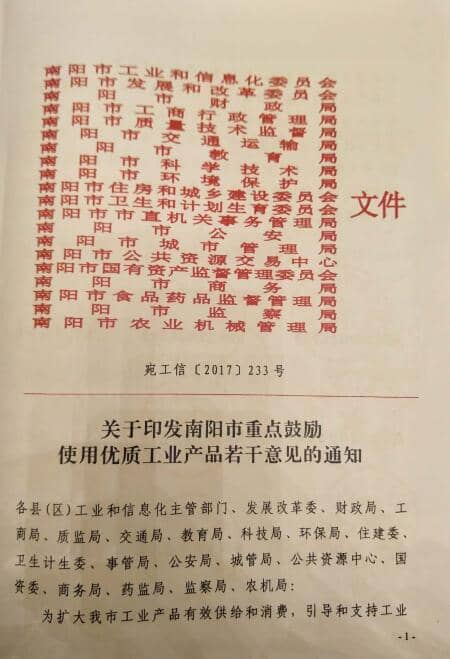 南阳市工业和信息化委员会
南阳市发展和改革委员会
南阳市财政局
南阳市工商行政管理局
南阳市质量技术监督局
南阳市交通运输局
南阳市教育局
南阳市科学技术局
南阳市环境保护局
南阳市住房和城乡建设委员会
南阳市卫生和计划生育委员会
南阳市市直机关事务管理局
南阳市公安局
南阳市城市管理局
南阳市公共资源交易中心
南阳市国有资产监督管理委员会
南阳市商务局
南阳市食品药品监督管理局
南阳市监察局
南阳市农业机械管理局
文件
宛工信〔2017〕233号
关于印发南阳市重点鼓励
使用优质工业产品若干意见的通知
各县(区)工业和信息化主管部门、发展改革委、财政局、工
商局、质监局、交通局、教育局、科技局、环保局、住建委、
卫生计生委、事管局、公安局、城管局、公共资源中心、国
资委、商务局、药监局、监察局、农机局:
为扩大我市工业产品有效供给和消费，引导和支持工业
-1-